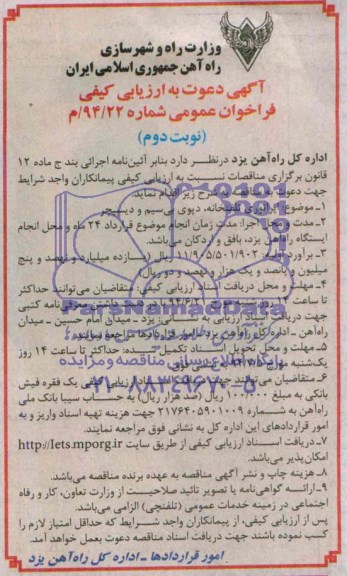 وزارت راه و شهرسازی
راه آهن جمهوری اسلامی ایران
آگهی دعوت به ارزیابی کیفی
فراخوان عمومی شماره ۹۴/۲۲/م
(نوبت دوم)
اداره کل راه‌آهن یزد درنظر دارد بنابر آئین‌نامه اجرائی بند ج ماده ۱۲
قانون برگزاری مناقصات نسبت به ارزیابی کیفی پیمانکاران واجد شرایط
جهت دعوت به مناقصه به شرح زیر اقدام نماید.
۱- موضوع: اپراتوری تلفنخانه، دپوی بی‌سیم و دیسپچر
۲- مدت و محل اجرا: مدت زمان انجام موضوع قرارداد ۲۴ ماه و محل انجام
ایستگاه راه‌آهن یزد، بافق و اردکان می‌باشد.
۳- برآورد اولیه: ۱۱/۹۰۵/۵۰۱/۹۰۲ ریال (یازده میلیارد و نهصد و پنج
میلیون و پانصد و یک هزار و نهصد و دو ریال)
۴- مهلت و محل دریافت اسناد ارزیابی کیفی: متقاضیان می‌توانند حداکثر
تا ساعت ۱۴ روز ۹۴/۶/۳۱ با در دست داشتن معرفی‌نامه کتبی
جهت دریافت اسناد ارزیابی به نشانی یزد - میدان امام حسین - میدان
راه‌آهن - اداره کل راه‌آهن یزد - امور قراردادها مراجعه نمایند.
۵- مهلت و محل تحویل اسناد تکمیل شده: حداکثر تا ساعت ۱۴ روز
یکشنبه مورخ به نشانی فوق
۶- متقاضیان می‌توانند جهت ارزیابی کیفی یک فقره فیش
بانکی به مبلغ ۱۰۰۰۰۰ ریال (صد هزار ریال) به حساب سیبا بانک ملی
راه‌آهن به شماره ۲۱۷۶۴۰۵۹۰۱۰۰۹ جهت هزینه تهیه اسناد واریز و به
امور قراردادهای این اداره کل به نشانی فوق مراجعه نمایند.
۷- دریافت اسناد ارزیابی کیفی از طریق سایت http://Iets.mporg.ir
امکان‌پذیر می‌باشد.
۸- هزینه چاپ و نشر آگهی مناقصه به عهده برنده مناقصه می‌باشد.
۹- ارائه گواهی‌نامه یا تصویر تائید صلاحیت از وزارت تعاون، کار و رفاه
اجتماعی در زمینه خدمات عمومی (تلفنچی) الزامی می‌باشد.
پس از ارزیابی کیفی، از پیمانکاران واجد شرایط که حداقل امتیاز لازم را
کسب نموده باشند جهت دریافت اسناد مناقصه دعوت بعمل خواهد آمد.
امور قراردادها - اداره کل راه‌آهن یزد
ParsNamadData
پایگاه اطلاع رسانی مناقصه و مزایده
۰۲۱-۸۸۳۴۹۶۷۰-۵